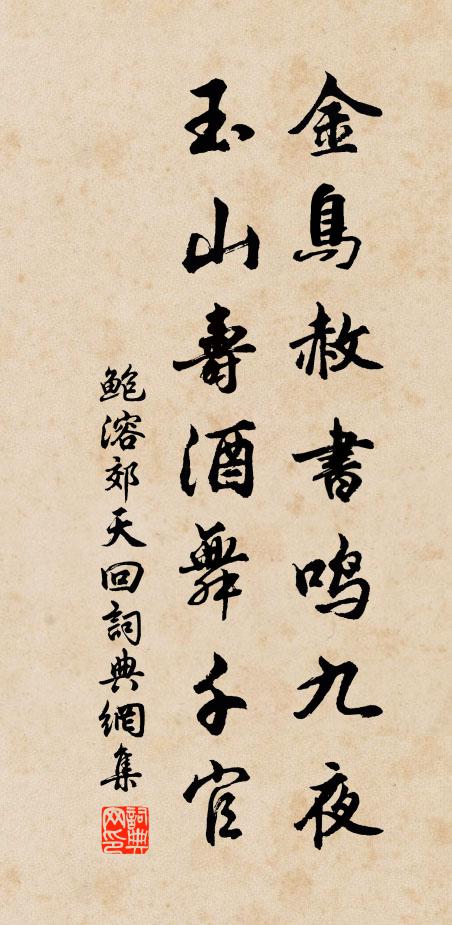 金鳥赦書鳴九夜
玉山壽酒舞千官
鮑溶郊天回詞典網集
詞典网印